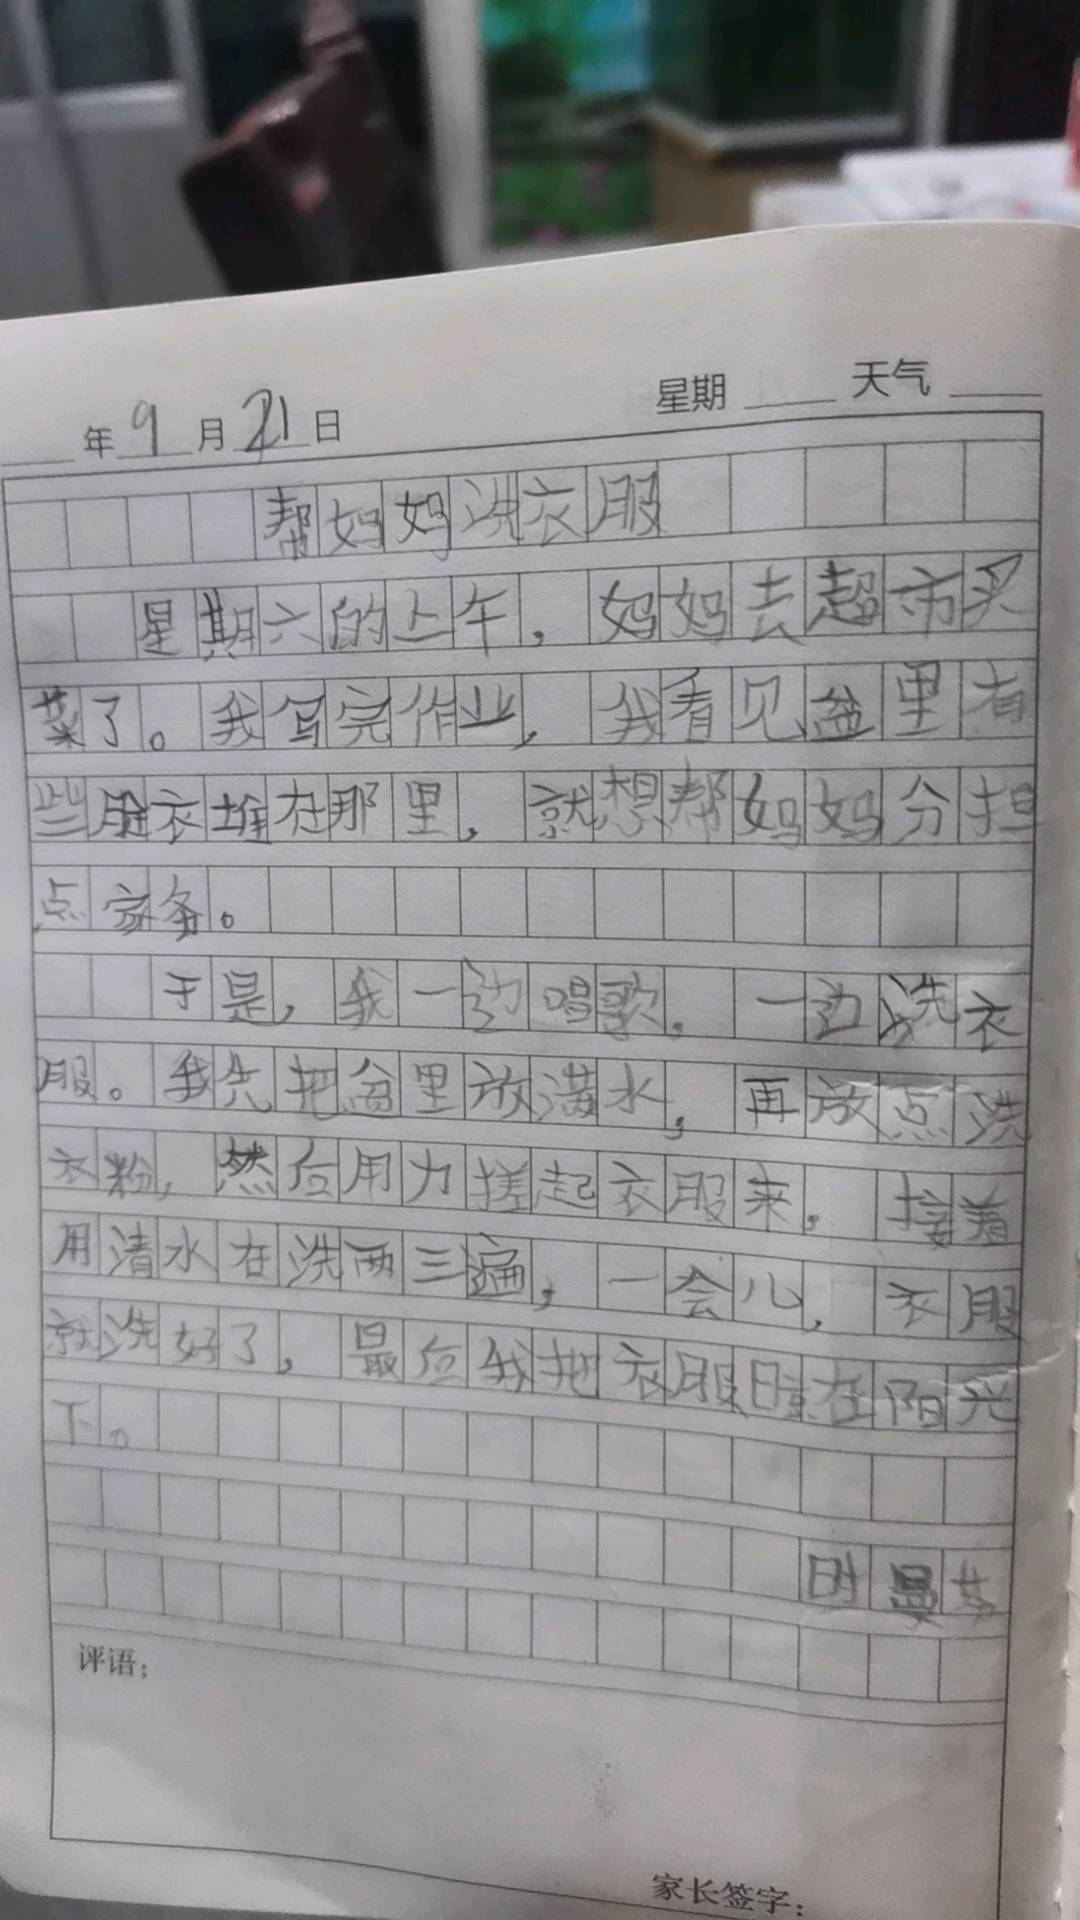 年9月21日 星期 天气
帮妈妈洗衣服
星期六的上午，妈妈去超市买
菜了。我写完作业，我看见盆里有
些脏衣堆在那里，就想帮妈妈分担
点家务。
于是，我一边唱歌，一边洗衣
服。我先把盆里放满水，再放点洗
衣粉，然后用力搓起衣服来，接着
用清水在洗两三遍，一会儿，衣服
就洗好了，最后我把衣服晾在阳光
下。
时曼
评语：
家长签字：